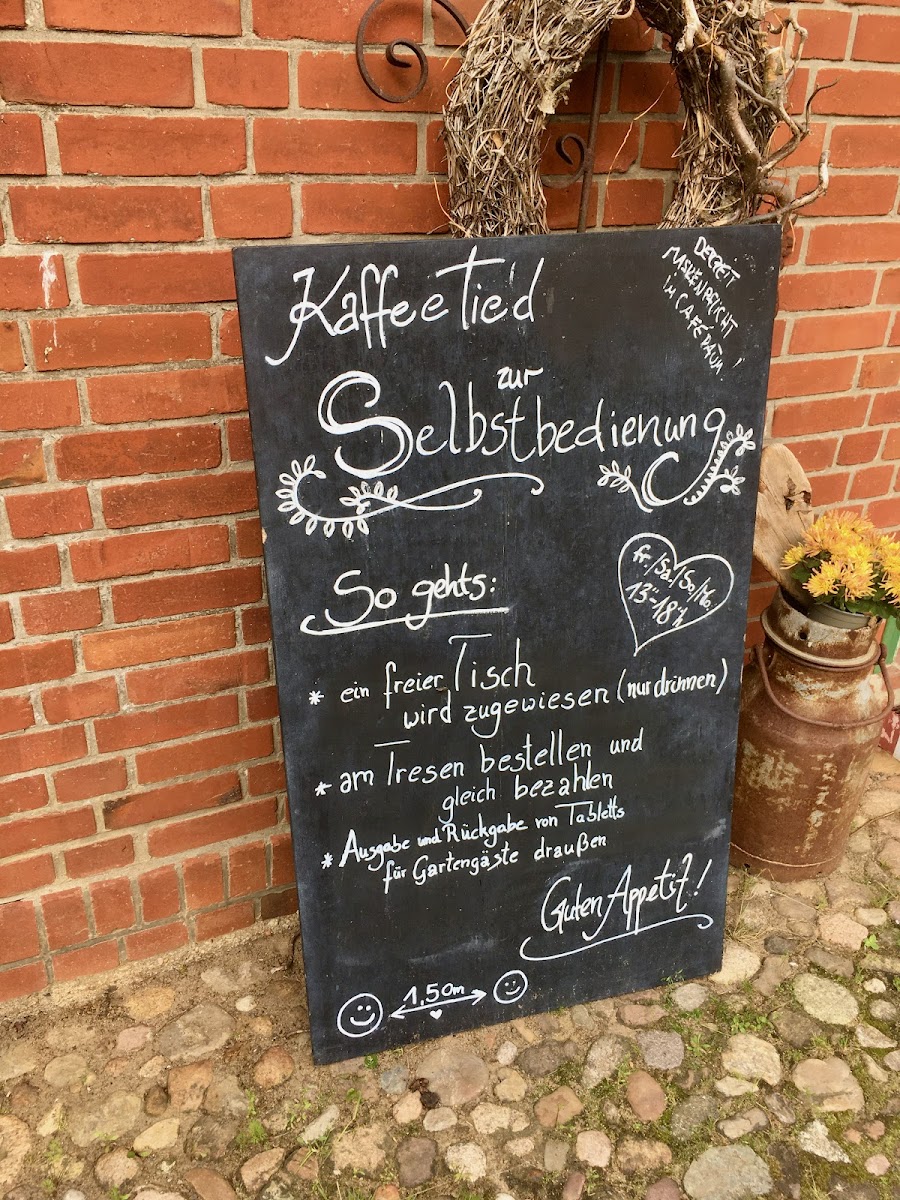 KaffeeTied
DERZEIT
MASKENPFLICHT
IM CAFÉRAUM!
zur
Selbstbedienung
So gehts:
Fr./Sa./So/Mo.
13°°-18°°h
* ein freier Tisch
wird zugewiesen (nur drinnen)
* am Tresen bestellen und
gleich bezahlen
* Ausgabe und Rückgabe von Tabletts
für Gartengäste draußen
Guten Appetit!
1,50m